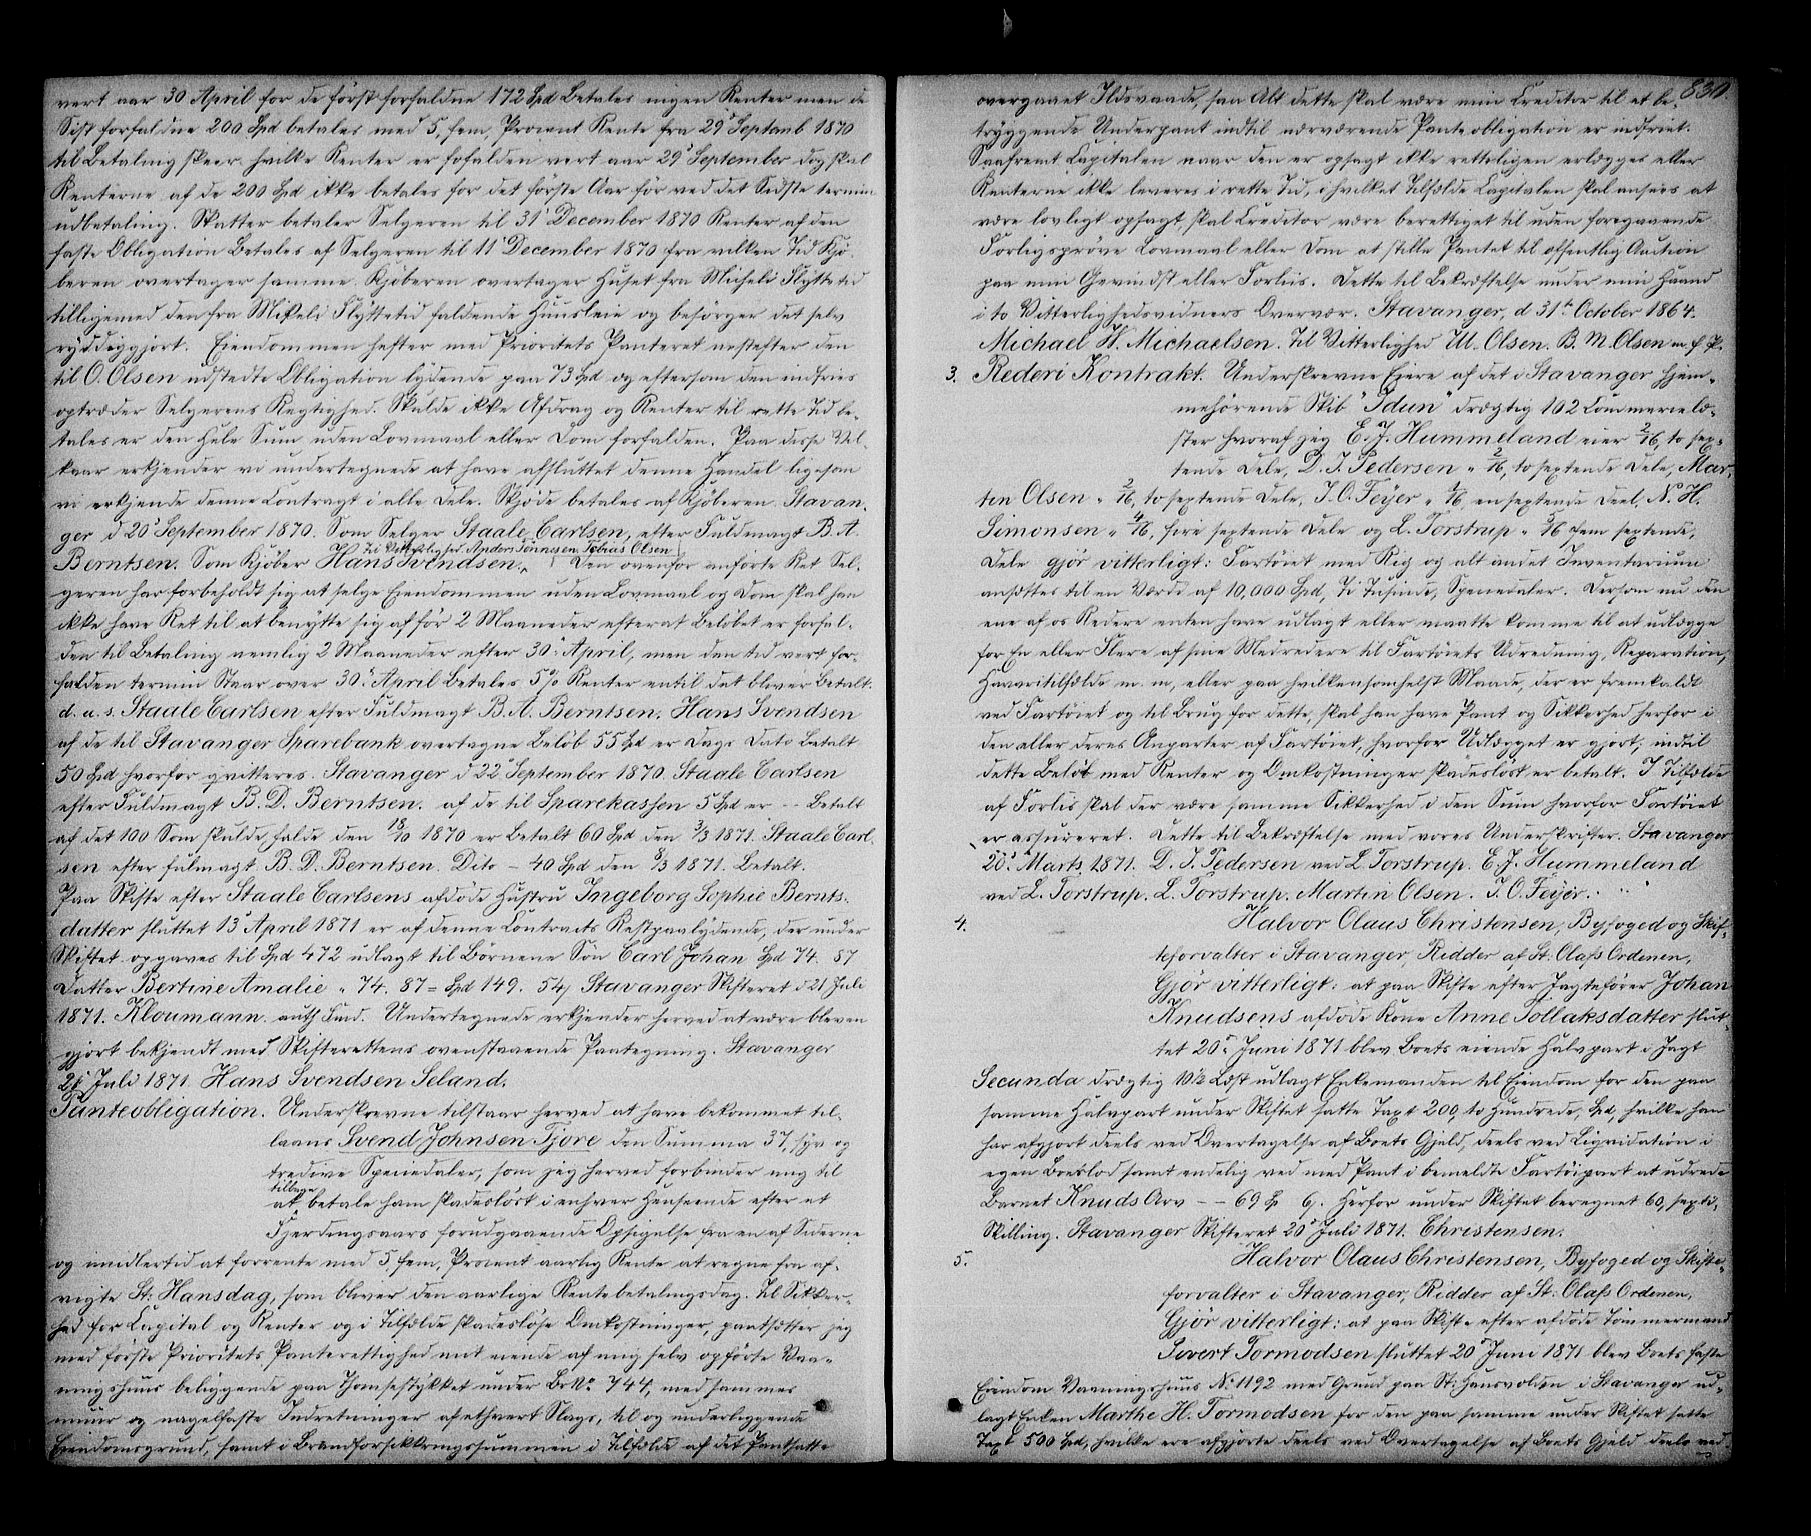 vert aar 30 April for de først forfaldne 172 Spd Betales ingen Renter men de
Sist forfaldne 200 Spd betales med 5, fem, Procent Rente fra 29' Septemb 1870
til Betaling skeer hvilke Renter er fofalden vert aar 29' September dog skal
Renterne af de 200 Spd ikke betales for det første Aar før ved det Sidste termin
udbetaling. Skatter betaler Selgeren til 31' December 1870 Renter af den
faste Obligation Betales af Selgeren til 11' December 1870 fra vilken Tid Kjø
beren overtager samme. Kjøberen overtager Huset fra Micheli Flyttetid
tilligemed den fra Mikeli Flyttetid faldende Huusleie og besörger det selv
ryddiggjort. Eiendommen hefter med Prioritets Panteret nestefter den
til O. Olsen udstedte Obligation lydende paa 73 Spd og eftersom den indfries
optræder Selgerens Regtighed. Skulde ikke Afdrag og Renter til rette Tid be-
tales er den Hele Sum uden Lovmaal eller Dom forfalden. Paa disse Vil
kaar erkjender vi undertegnede at have afsluttet denne Handel ligesom
vi erkjende denne Contragt i alle Dele. Skjøde betales af Kjøberen. Stavan-
ger d 20' September 1870. Som Selger Staale Carlsen, efter Fuldmagt B. A
Til Vitterlighed Anders Tönnesen Tobias Olsen
Berntsen. Som Kjøber Hans Svendsen. Den ovenfor anførte Ret Sel-
geren har forbeholdt sig at selge Eiendommen uden Lovmaal og Dom skal han
ikke have Ret til at benytte sig af för 2 Maaneder efterat Beløbet er forfal-
den til Betaling nemlig 2 Maaneder efter 30' April, men den tid vert for-
falden termin Staar over 30' April Betales 5% Renter entil det bliver Betalt.
d. u. s. Staale Carlsen efter Fuldmagt B. A. Berntsen. Hans Svendsen
af de til Stavanger Sparebank overtagne Beløb 55 Spd er Dags Dato Betalt
50 Spd hvorfor qvitteres. Stavanger d 22' September 1870. Staale Carlsen
efter Fuldmagt B. D. Berntsen. af de til Sparekassen 5 Spd er - - Betalt
af det 100 Som skulde falde den 18/10 1870 er Betalt 60 Spd den 3/3 1871. Staale Carl-
sen efter fulmagt B. D. Berntsen. Dito - 40 Spd den 8/3 1871. Betalt.
Paa Skifte efter Staale Carlsens afdøde Hustru Ingeborg Sophie Bernts-
datter sluttet 13' April 1871 er af denne Contracts Restpaalydende, der under
Skiftet opgaves til Spd 472 udlagt til Börnene Sön Carl Johan Spd 74. 87
Datter Bertine Amalie " 74. 87 = Spd 149. 54, Stavanger Skifteret d 21 Juli
1871. Kloumann. auth Fmd. Undertegnede erkjender herved at være bleven
gjort bekjendt med Skifterettens ovenstaaende Paategning. Stavanger
21' Juli 1871. Hans Svendsen Seland.
Panteobligation. Underskrevne tilstaar herved at have bekommet til-
laans Svend Johnsen Tjore den Summa 37, syv og
tredive Speciedaler, som jeg herved forbinder mig til
tilbage
at betale ham skadesløst i enhver Henseende efter et
Fjerdingsaars forudgaaende Opsigelse fra en af Siderne
og imidlertid at forrente med 5, fem, Procent aarlig Rente at regne fra af-
vigte St: Hansdag, som bliver den aarlige Rentebetalingsdag. Til Sikker-
hed for Capital og Renter og i Tilfælde skadesløse Omkostninger, pantsætter jeg
med første Prioritets Panterettighed mit eiende af mig selv opførte Vaa-
ningshuus beliggende paa Thomsestykket under BrNo 744, med sammes
muur og nagelfaste Indretninger af ethvert Slags, til og underliggende
Eiendomsgrund, samt i Brandforsikkringssummen i Tilfælde af det Pantsatte
830.
overgaaet Ildsvaade, saa Alt dette skal være min Creditor til et be-
tryggende Underpant indtil nærværende Panteobligation er indfriet.
Saafremt Capitalen naar den er opsagt ikke retteligen erlægges eller
Renterne ikke leveres i rette Tid, i hvilket Tilfælde Capitalen skal ansees at
være lovligt opsagt, skal Creditor være berettiget til uden foregaaende
Forligsprøve Lovmaal eller Dom at stille Pantet til offentlig Auction
paa min Gevindst eller Forliis. Dette til Bekræftelse under min Haand
i to Vitterlighedsvidners Overvær. Stavanger, d 31te October 1864.
Michael H. Michaelsen. Til Vitterlighed M. Olsen. B. M. Olsen m. f. P.
3. Rederi Kontrakt. Underskrevne Eiere af det i Stavanger hjem-
mehörende Skib "Idun" drægtig 102 Commercielæ-
ster hvoraf jeg E. J. Hummeland eier 2/16, to sex-
tende Dele, D. J. Pedersen " 2/16, to sextende Dele, Mar-
ten Olsen " 2/16, to sextende Dele, J. O. Feyer " 1/16 en sextende Deel, N. H.
Simonsen " 4/16, fire sextende Dele og L. Torstrup " 5/16 fem sextende,
Dele gjør vitterligt: Fartøiet med Rig og alt andet Inventarium
ansættes til en Værdi af 10,000 Spd, Ti Tusinde, Speciedaler. Dersom nu den
ene af os Redere enten have udlagt eller maatte komme til at udlægge
for En eller Flere af sine Medredere til Fartøiets Udredning, Reparation,
Havaritilfælde m. m, eller paa hvilkensomhelst Maade, der er fremkaldt
ved Fartøiet og til Brug for dette, skal han have Pant og Sikkerhed herfor i
den eller deres Anparter af Fartøiet, hvorfor Udlægget er gjort, indtil
dette Beløb med Renter og Omkostninger skadesløst er betalt. I Tilfælde
af Forlis skal der være samme Sikkerhed i den Sum hvorfor Fartøiet
er assureret. Dette til Bekræftelse med vores Underskrifter. Stavanger
20' Marts 1871. D. J. Pedersen ved L. Torstrup. E. J. Hummeland
ved L. Torstrup. L. Torstrup. Martin Olsen. J. O. Feyer.
4. Halvor Olaus Christensen, Byfoged og Skif-
teforvalter i Stavanger, Ridder af St. Olafs Ordenen,
Gjør vitterligt: at paa Skifte efter Jagtefører Johan
Knudsens afdøde Kone Anne Tollaksdatter slut-
tet 20' Juni 1871 blev Boets eiende Halvpart i Jagt
Secunda drægtig 10½ Læst udlagt Enkemanden til Eiendom for den paa
samme Halvpart under Skiftet satte Taxt 200, to Hundrede, Spd, hvilke han
har afgjort deels ved Overtagelse af Boets Gjeld, deels ved Liqvidation i
egen Boeslod samt endelig ved med Pant i bemeldte Fartøipart at udrede
Barnet Knuds Arv - - 69 ß 6. Herfor under Skiftet beregnet 60, sexti,
Skilling. Stavanger Skifteret 20' Juli 1871. Christensen.
5. Halvor Olaus Christensen, Byfoged og Skifte-
forvalter i Stavanger, Ridder af St: Olafs Ordenen,
Gjör vitterligt: at paa Skifte efter afdøde Tömmermand
Sivert Tormodsen sluttet 20' Juni 1871 blev Boets faste
Eiendom Vaaningshuus No 1192 med Grund paa St: Hansvolden i Stavanger ud-
lagt Enken Marthe H. Tormodsen for den paa samme under Skiftet satte
Taxt 500 Spd, hvilke ere afgjorte deels ved Overtagelse af Boets Gjeld deels ved